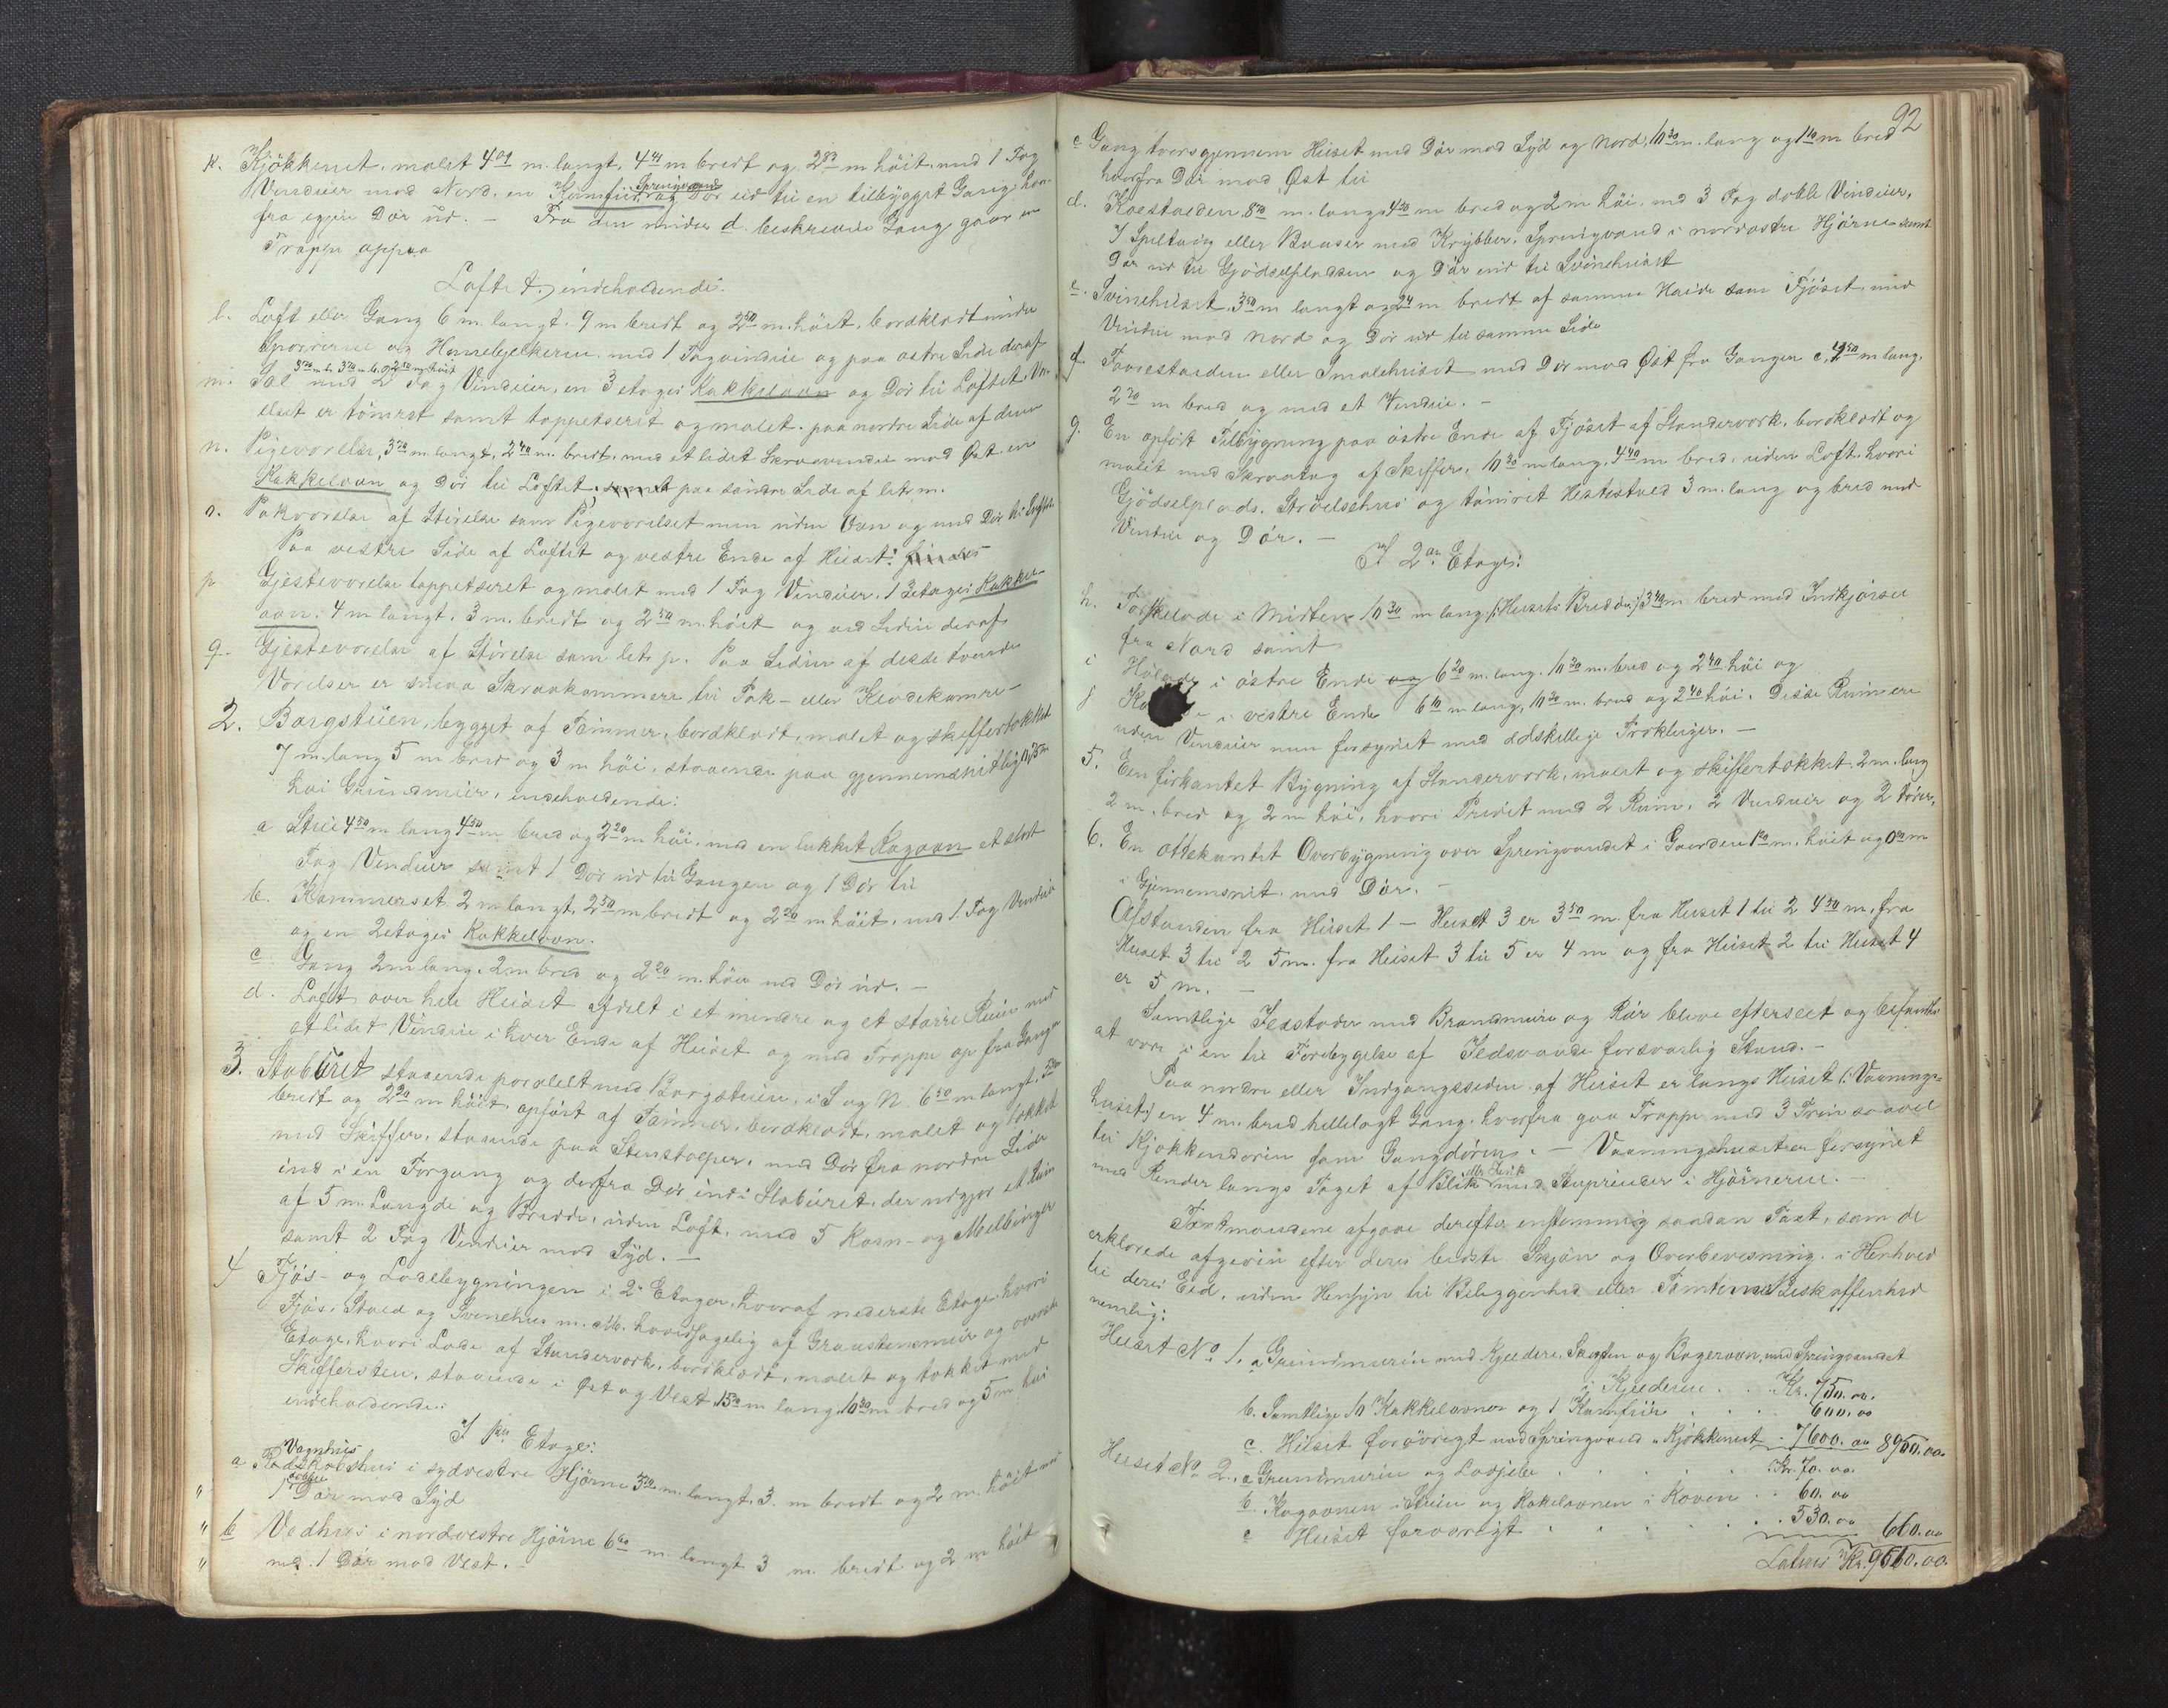 k. Kjökkenet, malet 4 01 m. langt, 4 41 m bredt og 2 83 m höit, med 1 Fag
Vinduer mod Nord, en Komfur, Springvand og Dör ud til en tilbygget Gang, hvor-
fra igjen Dör ud. — Fra den under d. beskrevne Gang gaar en
Trappe oppaa
Loftet, indeholdende:
l. Loft eller Gang 6 m. langt, 9 m bredt og 2 50 m. höit, bordklædt under
Sperrerne og Hanebjelkerne med 1 Fag vindue og paa östre Side deraf
m. Sal med 2 Fag Vinduer, en 3 etages Kakkelovn og Dör til Loftet. Væ-
relset er tömret samt tappetseret og malet. paa nordre Side af denne
n. Pigeværelse, 3 70 m. langt, 2 40 m. bredt, med et lidet Skraavindue mod Öst, en
Kakkelovn og Dör til Loftet, samt paa söndre Side af litr. m.
o. Pakværelse af Störelse som Pigeværelset men uden Ovn og med Dör til Loftet.
Paa vestre Side af Loftet og vestre Ende af Huset: findes
p Gjesteværelse tappetseret og malet med 1 Fag Vinduer, 1 2etages Kakkel-
ovn, 4 m langt, 3 m. bredt og 2 50 m. höit og ved Siden deraf
q. Gjesteværelse af Störelse som letr. p. Paa Siden af disse tvende
Værelser er smaa Skraakammere til Pak- eller Klædekamre —
2. Borgstuen, bygget af Tömmer, bordklædt, malet og skiffertækket
7 m. lang 5 m bred og 3 m höi, staaende paa gjennemsnitlig 0,35 m
höi Grundmur, indeholdende:
a Stue 4 50 m lang 4 50 m bred og 2 20 m höi, med en lukket Kogovn et stort
Fag Vinduer samt 1 Dör ud til Gangen og 1 Dör til
b. Kammerset 2 m langt, 2 50 m bredt og 2 20 m höit, med 1 Fag Vindue
og en 2etages Kakkelovn.
c Gang 2 m lang, 2 m bred og 2 20 m. höi med Dör ud. —
d. Loft over hele Huset afdelt i et mindre og et större Rum med
et lidet Vindue i hver Ende af Huset og med Trappe op fra Gangen
3. Staburet staaende paralelt med Borgstuen, i S og N. 6 50 m langt, 5 m
bredt og 2 20 m höit, opfört af Tömmer, bordklædt, malet og tækket
med Skiffer, staaende paa Stenstolper, med Dör fra nordre Side
ind i en Forgang og derfra Dör ind i Staburet, der udgjör et Rum
af 5 m. Længde og Bredde, uden Loft, med 5 Korn- og Melbinger
samt 2 Fag Vinduer mod Syd. —
4 Fjös- og Ladebygningen i 2 Etager, hvoraf nederste Etage, hvori
Fjös, Stald og Svinehus m. M. hovedsagelig af Graastensmur og överste
Etage, hvori Lade af Standerværk, bordklædt, malet og tækket med
Skiffersten, staaende i Öst og Vest 15 50 m lang, 10 30 m bred og 5 m höi
indeholdende:
I 1ste Etage:
a Vognhus Redskabshus i sydvestre Hjörne 3 20 m. langt, 3 m. bredt og 2 m. höit med
" 1 dobbel Dör mod Syd
" b Vedhus i nordvestre Hjörne 6 60 m. langt 3 m. bredt og 2 m höit
" med 1 Dör mod Vest. —
92
c Gang tversgjennem Huset med Dör mod Syd og Nord, 10 30 m. lang og 1 10 m bred
hvorfra Dör mod Öst til
d. Kostalden 8 70 m. lang, 4 20 m bred og 2 m höi, med 3 Fag doble Vinduer,
7 Spiltaug eller Baaser med Krybber, Springvand i nordöstre Hjörne samt
Dör ud til Gjödselpladsen og Dör ind til Svinehuset
e. Svinehuset, 3 50 m langt og 2 4 m bredt af samme Höide som Fjöset, med
Vindue mod Nord og Dör ud til samme Side
f. Faarestalden eller Smalehuset med Dör mod Öst fra Gangen c, 4 50 m lang,
2 70 m bred og med et Vindue. —
g. En opfört Tilbygning paa östre Ende af Fjöset af Standerværk, bordklædt og
malet med Skraatag af Skiffer, 10 30 m lang, 4 40 m bred, uden Loft, hvori
Gjödselplads, Ströelsehus og tömret Hestestald 3 m. lang og bred med
Vindue og Dör. —
I 2den Etage:
h. Tærskelade i Midten 10 30 m lang (: Husets Bredde :) 3 40 m bred med Indkjörsel
fra Nord samt
i Hölade i östre Ende og 6 20 m. lang, 10 30 m. bred og 2 40 höi og
j i vestre Ende 6 10 m lang, 10 30 m. bred og 2 40 höi. Disse Rum ere
uden Vinduer men forsynet med adskillige Trækluger. —
5. Een firkantet Bygning af Standerværk, malet og skiffertækket 2 m. lang
2 m. bred og 2 m höi, hvori Privet med 2 Rum, 2 Vinduer og 2 Dörer,
6. En ottekantet Overbygning over Springvandet i Gaarden 1 80 m. höit og 0 80 m
i Gjennemsnit med Dör. —
Afstanden fra Huset 1 — Huset 3 er 3 50 m. fra Huset 1 til 2 4 50 m, fra
Huset 3 til 2 5 m. fra Huset 3 til 5 er 4 m og fra Huset 2 til Huset 4
er 5 m. —
Samtlige Ildsteder med Brandmure og Rör bleve efterseet og befandtes
at være i en til Forebyggelse af Ildsvaade forsvarlig Stand. —
Paa nordre eller Indgangssiden af Huset er langs Huset (: Vaanings=
huset :) en 4 m. bred hellelagt Gang, hvorfra gaa Trappe med 3 Trin saavel
til Kjökkendören som Gangdören. — Vaaningshuset er forsynet
med Render langs Taget af Blik eller Sink med Stuprender i Hjörnerne. —
Taxtmændene afgave derefter enstemmig saadan Taxt, som de
erklærede afgiven efter deres bedste Skjön og Overbevisning, i Henhold
til deres Eed, uden Hensyn til Beliggenhed eller Tomtens Beskaffenhed
nemlig:
Huset No 1. a Grundmuren med Kjeldere, Skorsten og Bagerovn, med Springvandet
i Kjelderen . . . Kr. 750.00.
b. Samtlige 10 Kakkelovner og 1 Komfur . . . 600.00
c. Huset forövrigt med Springvand i Kjökkenet - 7600.00 8950.00.
Huset No 2. a Grundmuren og Ladpibe . . . Kr. 70.00.
b. Kogovnen i Stuen og Kakelovnen i Koven . . 60.00
c Huset forövrigt . . . 530.00 660.00
Latus Kr. 9610.00.